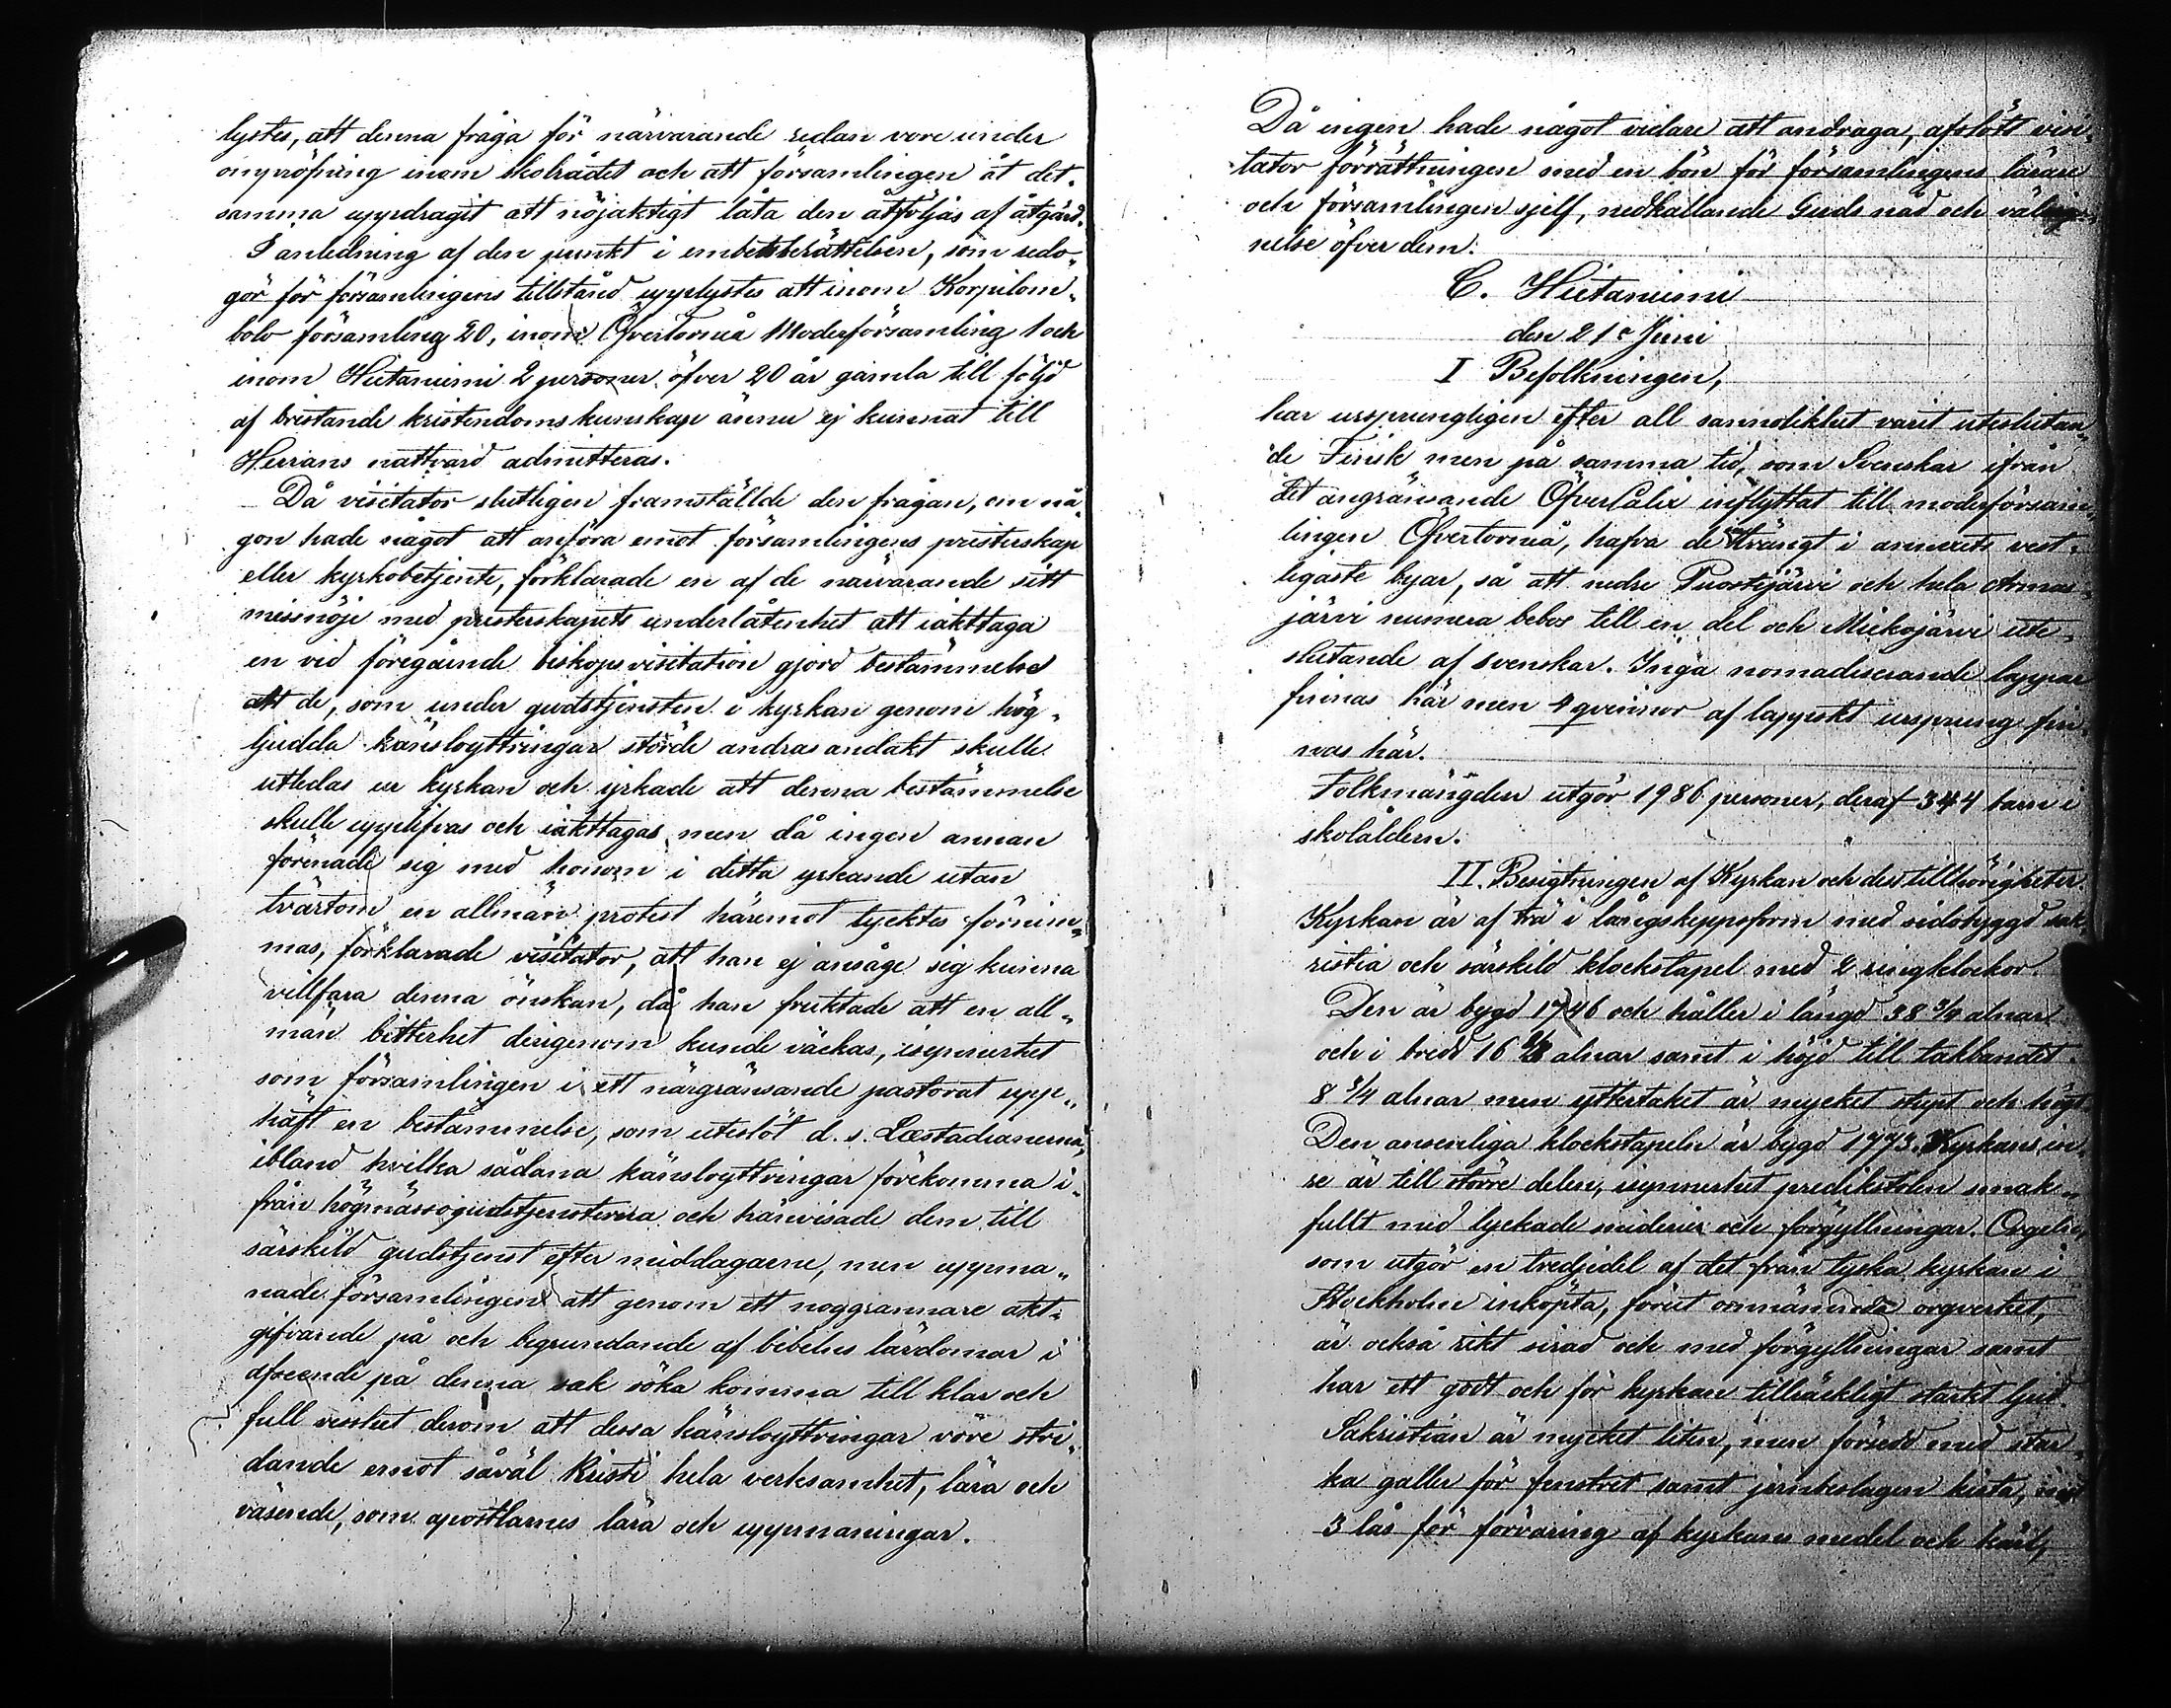 lystes, att denna fråga för närvarande redan vore under
ompröfning inom skolrådet och att församlingen åt det-
samma uppdragit att nöjaktigt låta den åtföljas af åtgärd.
I anledning af den punkt i embetsberättelsen, som redo-
gör för församlingens tillstånd upplystes att inom Korpilom-
bolo församling 20, inom Öfvertorneå Moderförsamling 1 och
inom Hietaniemi 2 personer öfver 20 år gamla till följd
af bristande kristendomskunskap ännu ej kunnat till
Herrans nattvard admitteras.
Då visitator slutligen framställde den frågan, om nå-
gon hade något att anföra emot församlingens presterskap
eller kyrkobetjente, förklarade en af de närvarande sitt
missnöje med presterskapets underlåtenhet att iakttaga
en vid föregående biskopsvisitation gjord bestämmelse
att de, som under gudstjensten i kyrkan genom hög-
ljudda känsloyttringar störde andras andakt skulle
utledas ur kyrkan och yrkade att denna bestämmelse
skulle upplifvas och iakttagas, men då ingen annan
förenade sig med honom i detta yrkande utan
tvärtom en allmän protest häremot tycktes förnim-
mas, förklarade visitator, att han ej ansåge sig kunna
villfara denna önskan, då han fruktade att en all-
män bitterhet derigenom kunde väckas, isynnerhet
som församlingen i ett närgränsande pastorat upp-
häft en bestämmelse, som uteslöt d. s. Læstadianerna,
ibland hvilka sådana känsloyttringar förekomma i-
från högmässogudstjensterna och hänvisade dem till
särskild gudstjenst efter middagarne, men uppma-
nade församlingen att genom ett noggrannare akt-
gifvande på och begrundande af bibelns lärdomar i
afseende på denna sak söka komma till klar och
full visshet derom att dessa känsloyttringar vore stri-
dande emot såväl Kristi hela verksamhet, lära och
väsende, som apostlarnes lära och uppmaningar.
Då ingen hade något vidare att andraga, afslöts visi-
tator förrättningen med en bön för församlingens lärare
och församlingen sjelf, nedkallande Guds nåd och välsig-
nelse öfver dem.
C. Hietaniemi
den 21e Juni
I Befolkningen,
har ursprungligen efter all sannolikhet varit uteslutan-
de Finsk men på samma tid, som Svenskar ifrån
det angränsande Öfvercalix inflyttat till moderförsam-
lingen Öfvertorneå, hafva de inträngt i annexets vest-
ligaste byar, så att nedre Puostijärvi och hela Armas-
järvi numera bebos till en del och Miekojärvi ute-
slutande af svenskar. Inga nomadiserande lappar
finnas här men 4 qvinnor af lappskt ursprung fin-
nas här.
Folkmängden utgör 1986 personer, deraf 344 barn i
skolåldern.
II. Besigtningen af Kyrkan och dess tillhörigheter.
Kyrkan är af trä i långskeppsform med sidobyggd sak-
ristia och särskild klockstapel med 2 ringklockor.
Den är bygd 1746 och håller i längd 38 3/4 alnar
och i bredd 16 alnar samt i höjd till takbandet
8 3/4 alnar men yttertaket är mycket stupt och högt.
Den ansenliga klockstapeln är bygd 1773. Kyrkans in-
re är till större delen, isynnerhet predikstolen smak-
fullt med lyckade sniderier och förgyllningar. Orgeln,
som utgör en tredjedel af det från tyska kyrkan i
Stockholm inköpta, förut omnämnda orgverket,
är också rikt sirad och med förgyllningar samt
har ett godt och för kyrkan tillräckligt starkt ljud.
Sakristian är mycket liten, men försedd med star-
ka galler för fenstret samt jernbeslagen kista, med
3 lås för förvaring af kyrkans medel och kärl,